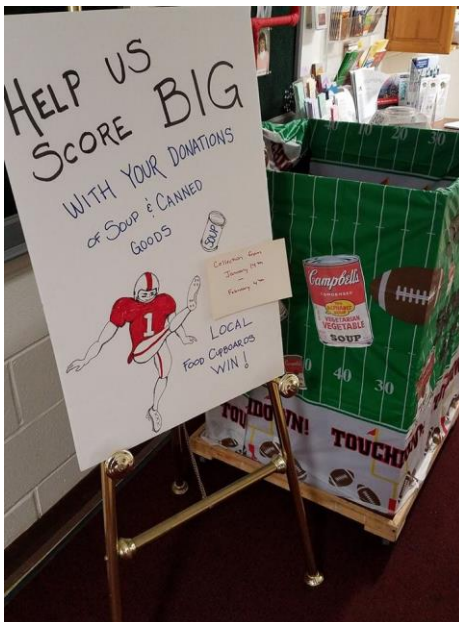 HELP US
SCORE BIG
WITH YOUR DONATIONS
OF SOUP & CANNED
GOODS
SOUP
Collection from
January 19th
—
February 4th
1
LOCAL
FOOD CUPBOARDS
WIN!
10 20 30
Campbell's
CONDENSED
VEGETARIAN
VEGETABLE
SOUP
40 30
TOUCHDOWN!
TOUCHD